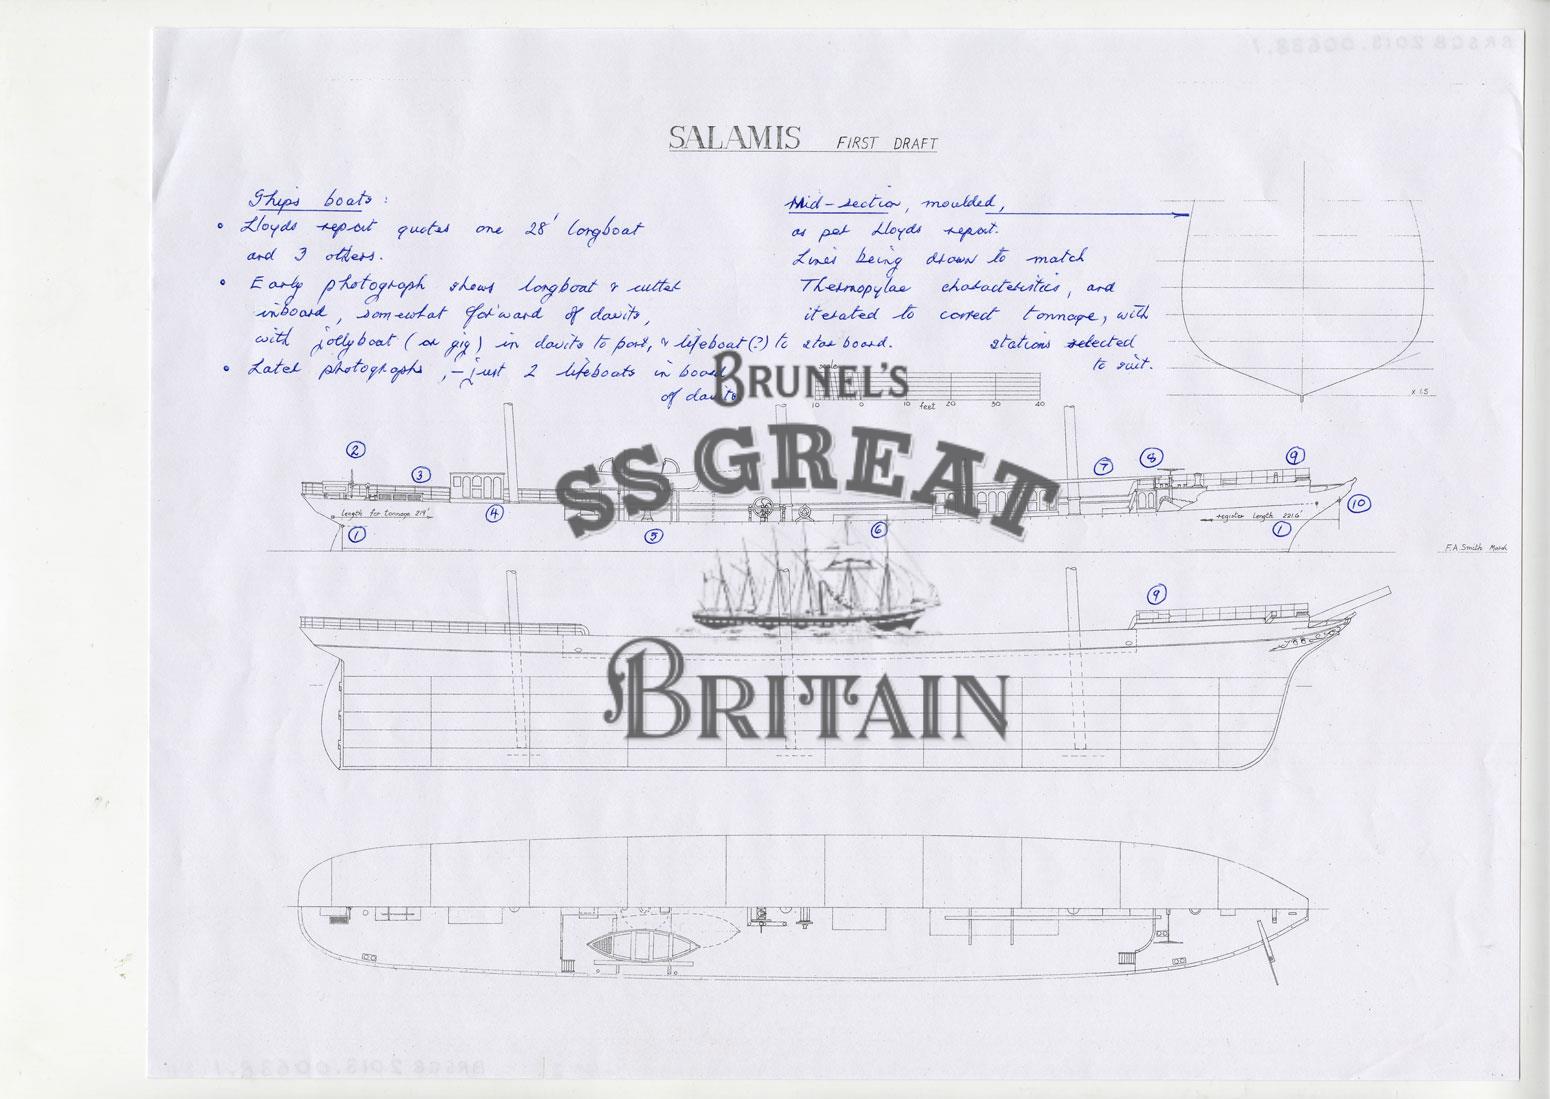 SALAMIS FIRST DRAFT
Ships boats:
• Lloyds report quotes one 28' longboat
and 3 others.
• Early photograph shows longboat & cutter
inboard, somewhat forward of davits,
with jollyboat (or gig) in davits to port, & lifeboat(?) to starboard.
• Later photographs, – just 2 lifeboats in board
of davits
Mid-section, moulded,
as per Lloyds report.
Lines being drawn to match
Thermopylae characteristics, and
iterated to correct tonnage, with
stations selected
to suit.
x 1.5
scale
10 0 10 20 30 40
feet
BRUNEL'S
SS GREAT
BRITAIN
2
3
4
5
6
7
8
9
10
length for tonnage 219'
1
register length 221.6'
1
F.A. Smith March
9
BRSGB 2013.00638.1
BRSGB 2013.00638.1